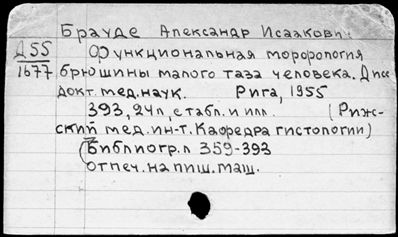 Брауде Александр Исаакович
Д55 Функциональная морфология
1677 брюшины малого таза человека. Дисс
докт. мед. наук. Рига, 1955
393, 24 л, с табл. и илл. (Риж-
ский мед. ин-т. Кафедра гистологии)
(Библиогр. л 359-393
отпеч. на пиш. маш.